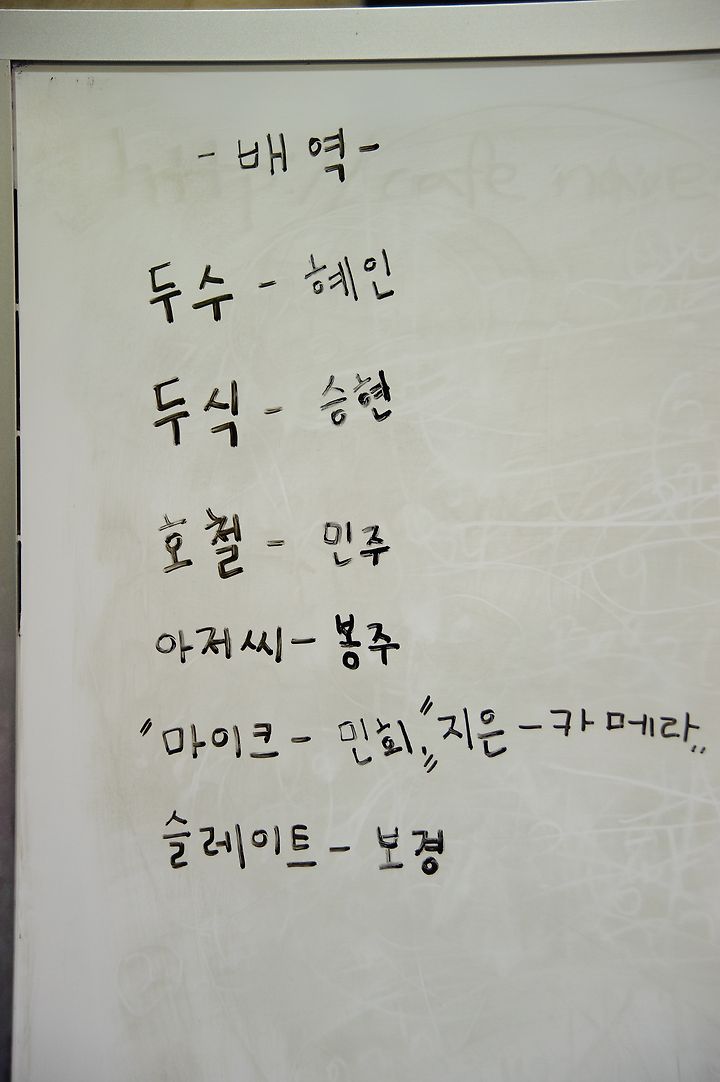 - 배역 -
두수 - 혜인
두식 - 승현
호철 - 민주
아저씨 - 봉주
"마이크 - 민희," "지은 - 카메라"
슬레이트 - 보경